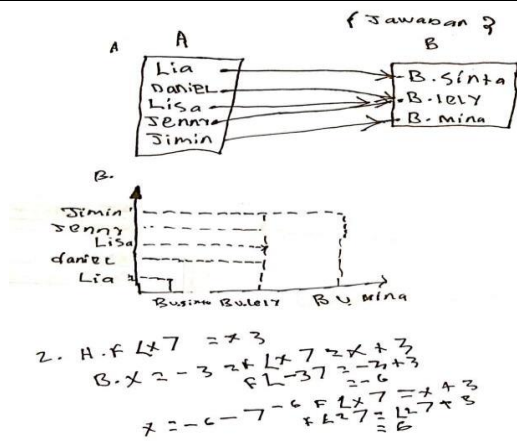 { Jawaban }
A A B
Lia
DANIEL
Lisa
Jenny
Jimin
B. Sinta
B. lely
B. mina
B.
Jimin
Jenny
Lisa
daniel
Lia
Bu sinta Bu. lely BU Mina
2. H. F Lx7 = x 3
B. x = -3 2x Lx7 = x + 3
F L-37 = -3 + 3
= -6
x = -6 - 7 - 6 F Lx7 = x + 3
x L27 = L27 + 3
= 6